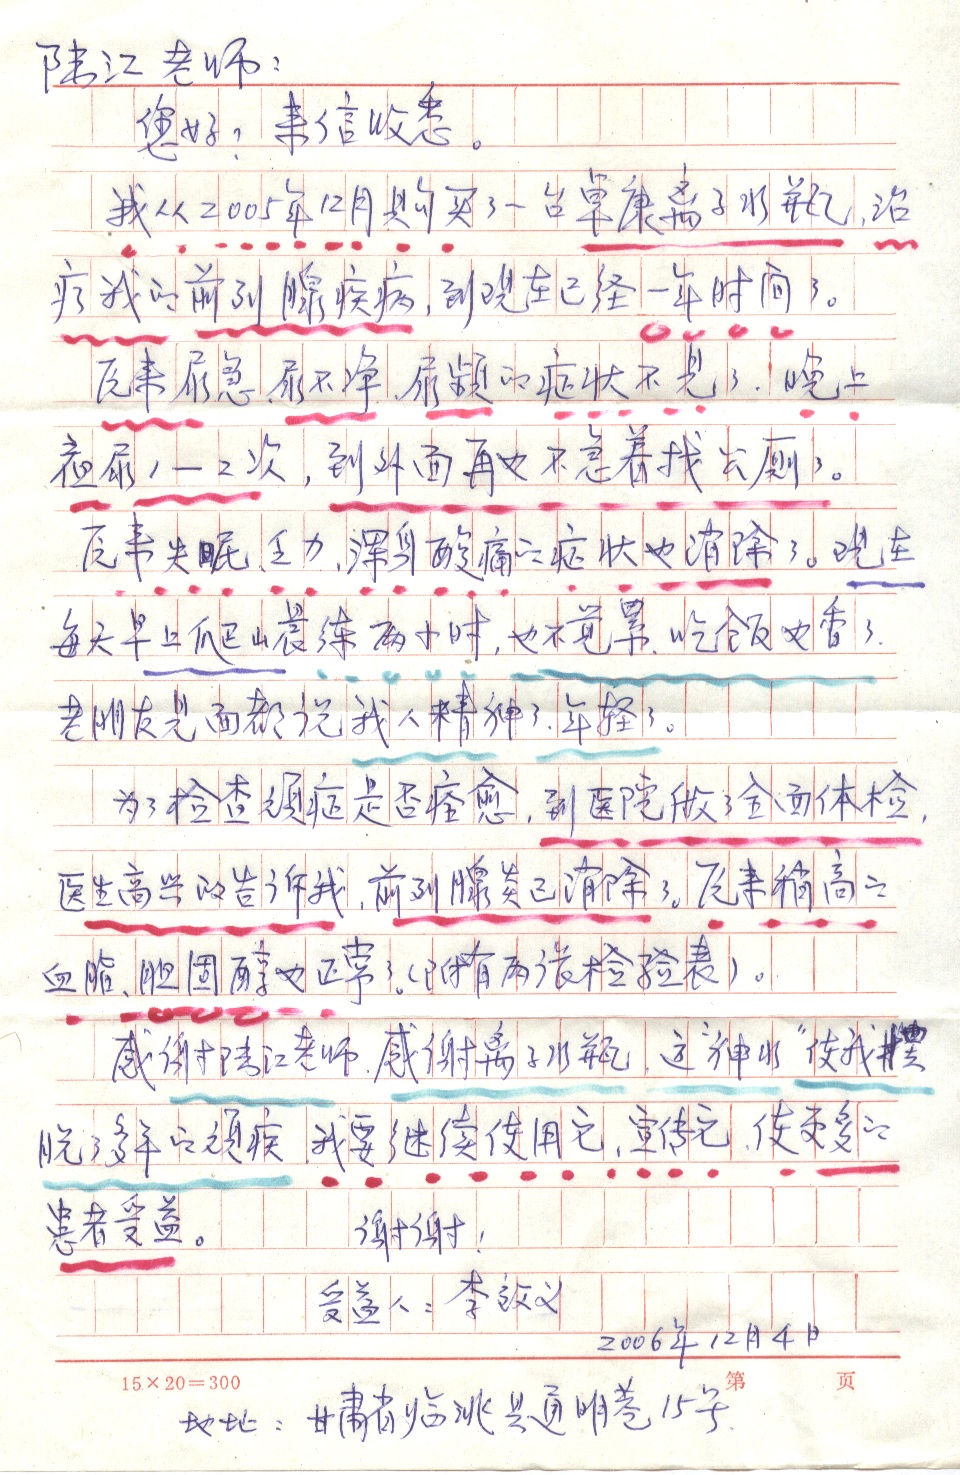 陆江老师：
您好！来信收悉。
我从2005年12月购买了一台卓康离子水瓶，治
疗我的前列腺疾病，到现在已经一年时间了。
原来尿急、尿不净、尿频的症状不见了．晚上
夜尿1—2次，到外面再也不急着找公厕了。
原来失眠、乏力，浑身酸痛的症状也消除了。现在
每天早上爬山晨练两小时，也不觉累．吃饭也香了．
老朋友见面都说我人精神了．年轻了。
为了检查顽症是否痊愈，到医院做了全面体检，
医生高兴的告诉我，前列腺炎已消除了。原来稍高的
血脂、胆固醇也正常了。（附有两张检验表）。
感谢陆江老师．感谢离子水瓶，这"神水"使我摆
脱了多年的顽疾．我要继续使用它，宣传它．使更多的
患者受益。 谢谢！
受益人：李 义
2006年12月4日
15×20=300 第 页
地址：甘肃省临洮县通明巷15号．